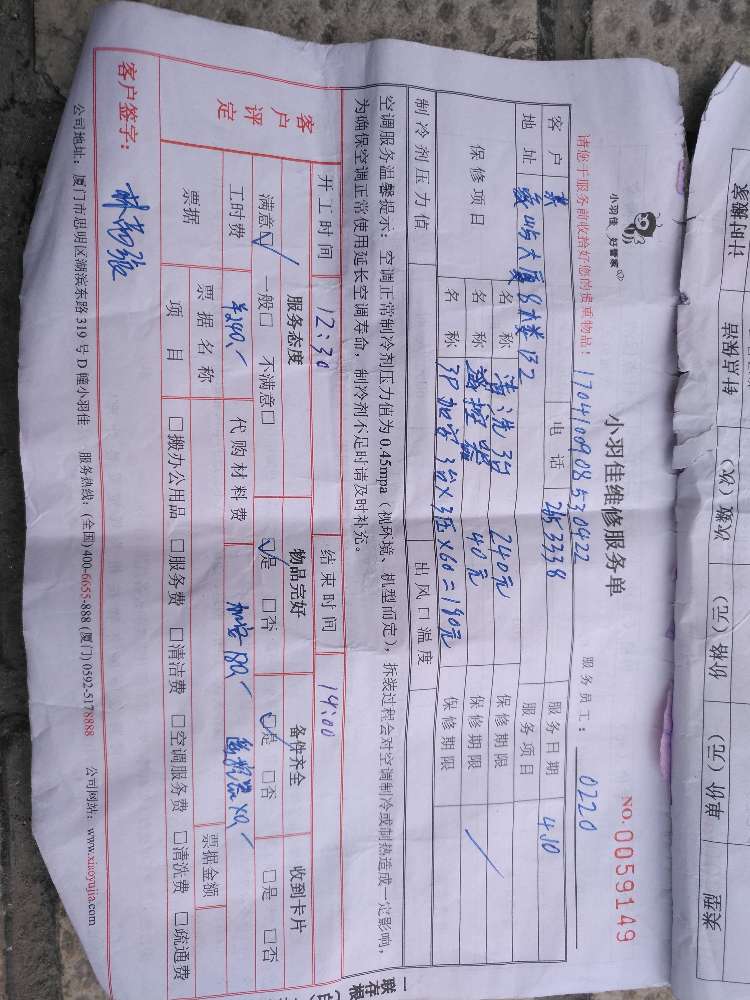 小羽佳 好管家
小羽佳维修服务单
NO.0059149
请您于服务前收拾好您的贵重物品!
服务员工: 0220
客户
电话
服务日期
地址
服务项目
保修项目
名称 清洗3台 240元 保修期限
名称 遥控器 40元 保修期限
名称 保修期限
制冷剂压力值
出风口温度
空调服务温馨提示: 空调正常制冷剂压力值为0.45mpa(视环境、机型而定), 拆装过程会对空调制冷或制热造成一定影响,
为确保空调正常使用延长空调寿命, 制冷剂不足时请及时补充。
开工时间 12:30 结束时间 14:00
客户评定
服务态度 物品完好 备件齐全 收到卡片
满意□ 一般□ 不满意□ □是 □否 □是 □否 □是 □否
工时费 代购材料费
票据 票据名称 票据金额
项目 □搬办公用品 □服务费 □清洁费 □空调服务费 □清洗费 □疏通费
客户签字:
公司地址: 厦门市思明区湖滨东路319号D幢小羽佳 服务热线: (全国)400-6655-888 (厦门)0592-5178888 公司网站: www.xiaoyujia.com
计时搬家
针点保洁
次数(次)
价格(元)
单价(元)
类型